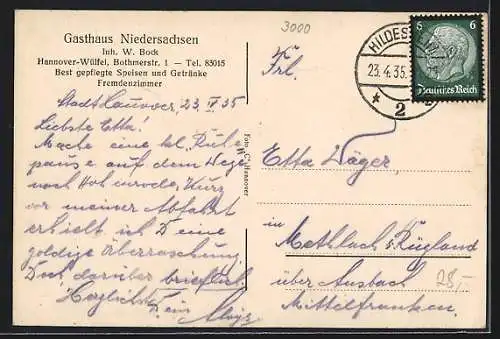 3000
Gasthaus Niedersachsen
Inh. W. Bock
Hannover-Wülfel, Bothmerstr. 1 — Tel. 83015
Best gepflegte Speisen und Getränke
Fremdenzimmer
Stadt Hannover, 23 IV 35
Liebste Etta!
Mache eine kl. Ruhe
pause auf dem Wege
nach Kurz
vor meiner Abfahrt
erhielt ich D eine
goldige Überraschung.
Doch darüber brieflich
Herzlichst Dein Aloys
Foto Hannover
HILDESHEIM
23.4.35.
* 2
6 6
Deutsches Reich
Frl.
Etta Wäger,
in
Methlach Rügland
über Ansbach
Mittelfranken.
28,–